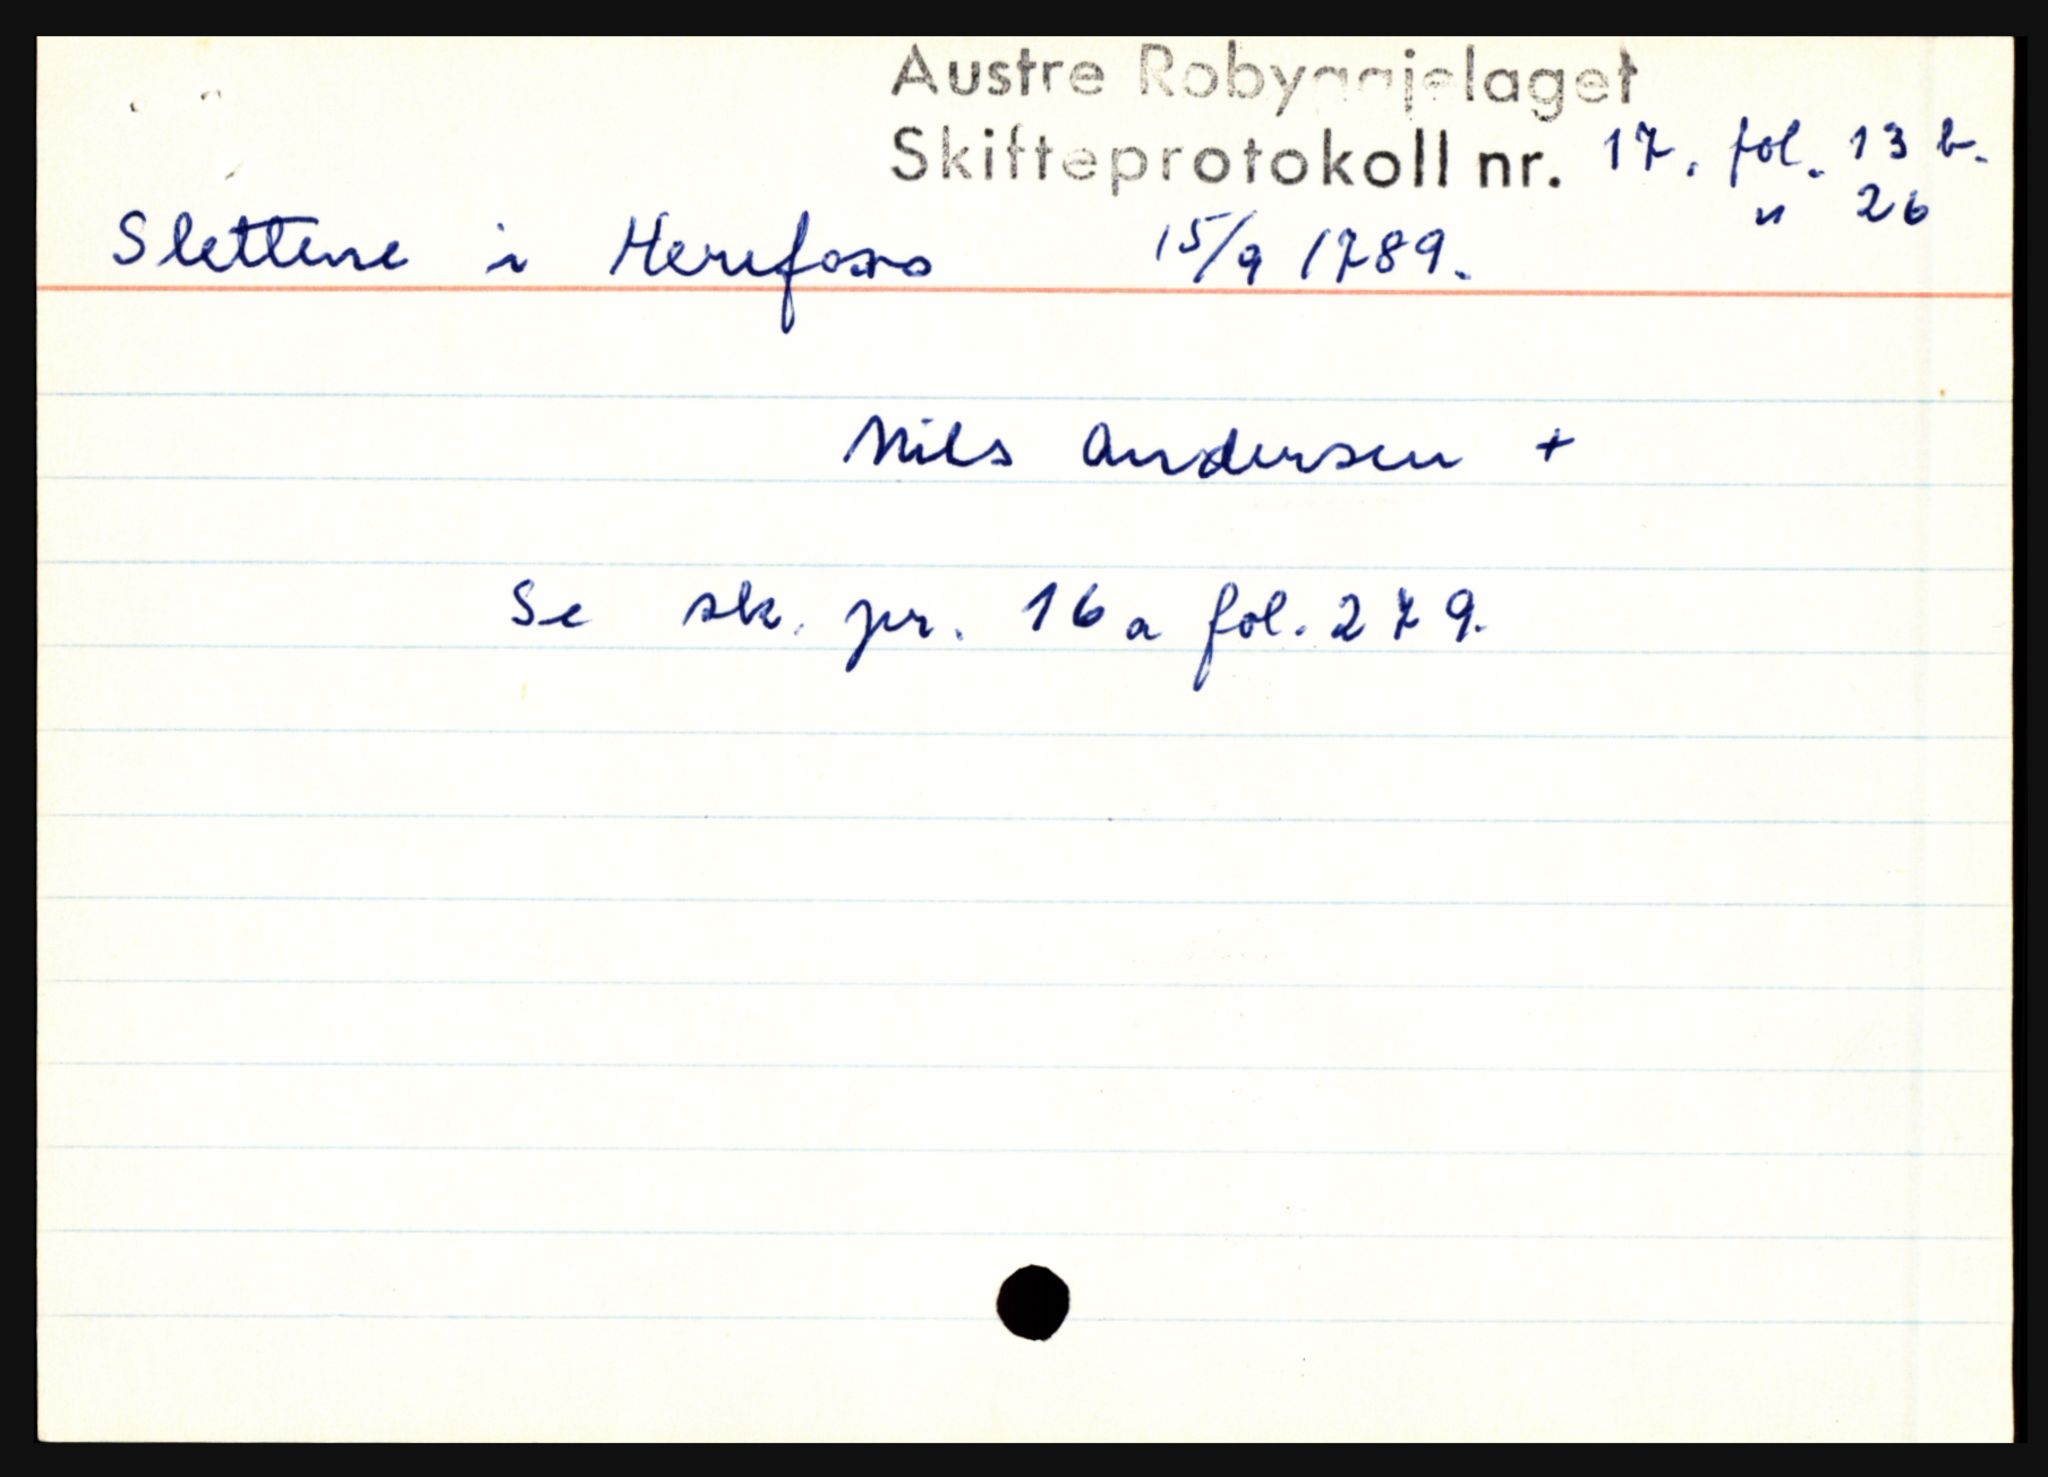 Austre Robyggjelaget
Skifteprotokoll nr. 17. fol. 13 b.
" 26
Slettene i Herefoss 15/9 1789.
Nils Andersen +
Se sk. pr. 16 a fol. 279.